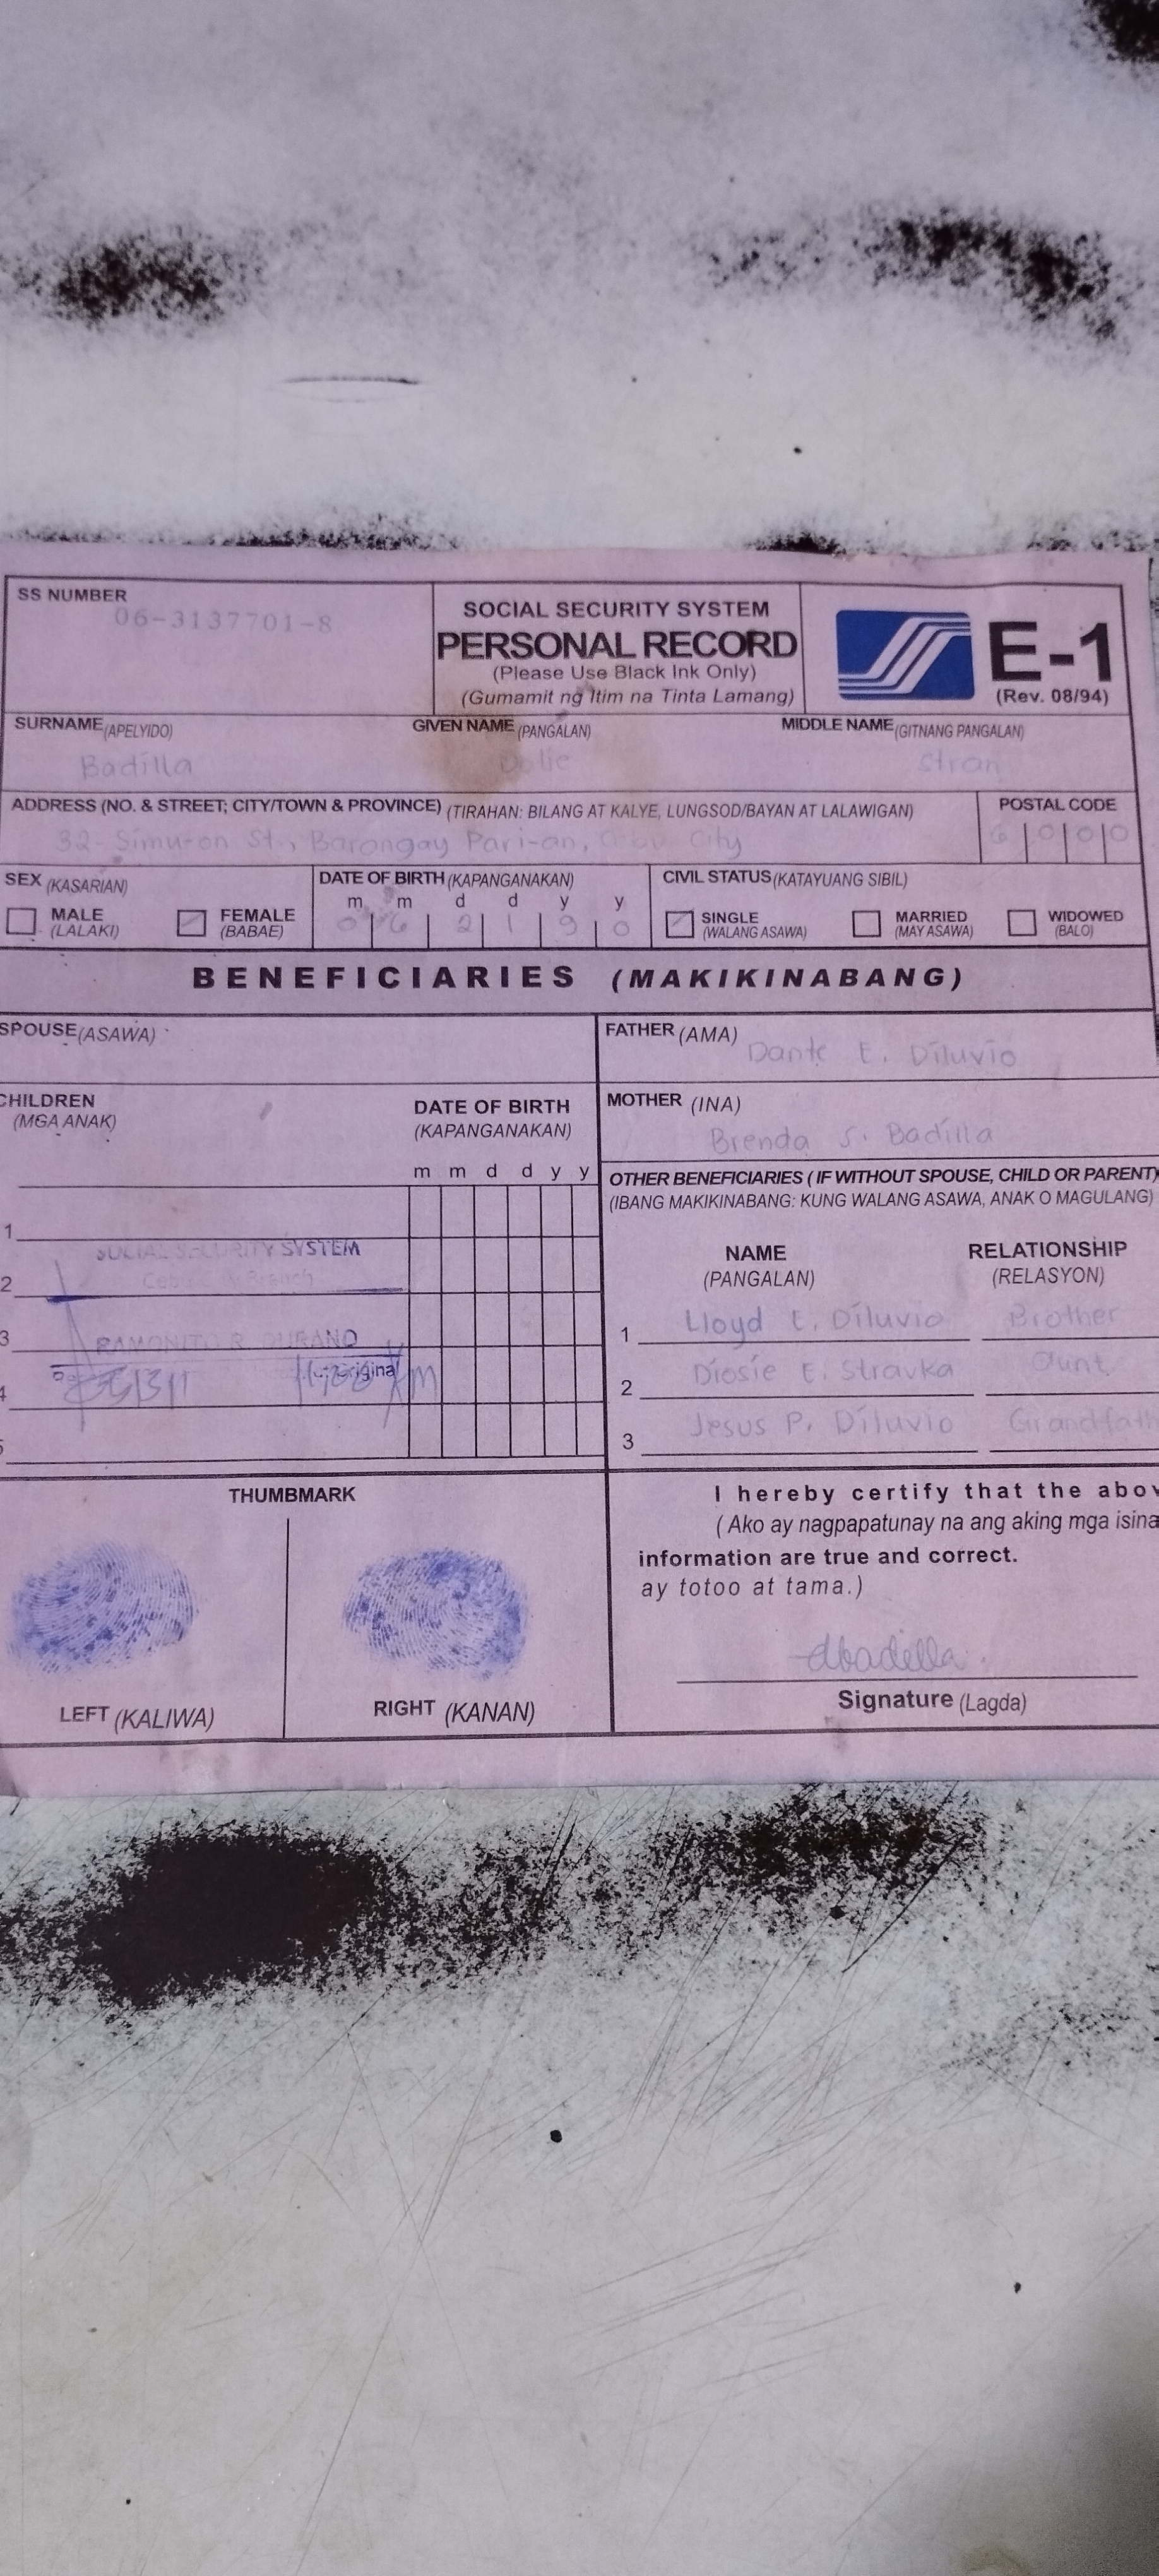 SS NUMBER
06-3137701-8
SOCIAL SECURITY SYSTEM
PERSONAL RECORD
(Please Use Black Ink Only)
(Gumamit ng Itim na Tinta Lamang)
E-1
(Rev. 08/94)
SURNAME (APELYIDO) GIVEN NAME (PANGALAN) MIDDLE NAME (GITNANG PANGALAN)
Badilla Stran
ADDRESS (NO. & STREET; CITY/TOWN & PROVINCE) (TIRAHAN: BILANG AT KALYE, LUNGSOD/BAYAN AT LALAWIGAN) POSTAL CODE
32- Simu-on St., Barangay Pari-an, Cebu City 6 0 0 0
SEX (KASARIAN) DATE OF BIRTH (KAPANGANAKAN) CIVIL STATUS (KATAYUANG SIBIL)
m m d d y y
MALE (LALAKI) FEMALE (BABAE) 0 6 2 1 9 0 SINGLE (WALANG ASAWA) MARRIED (MAY ASAWA) WIDOWED (BALO)
BENEFICIARIES (MAKIKINABANG)
SPOUSE (ASAWA) FATHER (AMA)
Dante E. Diluvio
CHILDREN DATE OF BIRTH MOTHER (INA)
(MGA ANAK) (KAPANGANAKAN) Brenda S. Badilla
m m d d y y
OTHER BENEFICIARIES ( IF WITHOUT SPOUSE, CHILD OR PARENT)
(IBANG MAKIKINABANG: KUNG WALANG ASAWA, ANAK O MAGULANG)
NAME RELATIONSHIP
(PANGALAN) (RELASYON)
1
2
3
4
5
SOCIAL SECURITY SYSTEM
Branch
RAMONITO R.
1 Lloyd E. Diluvio Brother
2 Diosie E. Stravka Aunt
3 Jesus P. Diluvio Grandfath
THUMBMARK
LEFT (KALIWA) RIGHT (KANAN)
I hereby certify that the abov
( Ako ay nagpapatunay na ang aking mga isina
information are true and correct.
ay totoo at tama.)
dbadilla
Signature (Lagda)